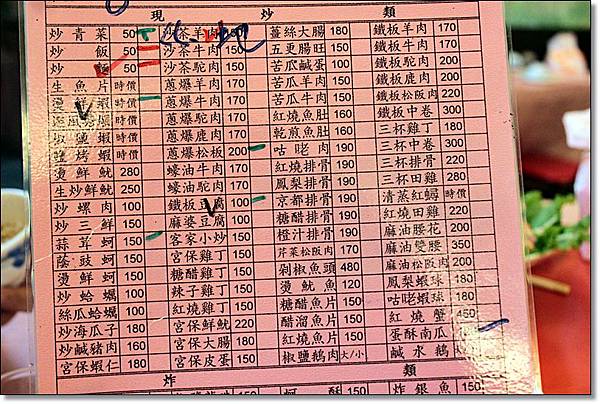 現炒類
炒青菜 50 沙茶羊肉 150 薑絲大腸 180 鐵板羊肉 170
炒飯 50 沙茶牛肉 150 五更腸旺 150 鐵板牛肉 170
炒麵 50 沙茶駝肉 150 苦瓜鹹蛋 100 鐵板駝肉 170
生魚片 時價 蔥爆羊肉 150 苦瓜羊肉 150 鐵板鹿肉 200
燙蝦 時價 蔥爆牛肉 150 苦瓜牛肉 150 鐵板松阪肉 220
蝦 時價 蔥爆駝肉 150 紅燒魚肚 160 鐵板中卷 300
蝦 時價 蔥爆鹿肉 150 乾煎魚肚 160 三杯雞丁 180
鹽烤蝦 時價 蔥爆松板 200 咕咾肉 190 三杯中卷 300
燙鮮魷 280 蠔油牛肉 150 紅燒排骨 190 三杯羊肉 220
生炒鮮魷 250 蠔油駝肉 150 鳳梨排骨 190 三杯田雞 230
炒螺肉 100 鐵板豆腐 100 京都排骨 190 清蒸紅蟳 時價
炒三鮮 150 麻婆豆腐 100 糖醋排骨 190 紅燒田雞 220
蒜茸蚵 150 客家小炒 150 橙汁排骨 190 麻油腰花 200
蔭豉蚵 150 宮保雞丁 150 芹菜松阪肉 170 麻油雙腰 350
燙鮮蚵 150 糖醋雞丁 150 剁椒魚頭 480 麻油松阪肉 200
炒蛤蠣 150 辣子雞丁 150 燙魷魚 120 鳳梨蝦球 180
絲瓜蛤蠣 150 紅燒雞丁 150 糖醋魚片 150 咕咾蝦球 180
炒海瓜子 180 宮保鮮魷 220 醋溜魚片 150 紅燒蟹 450
炒鹹豬肉 160 宮保大腸 180 紅燒魚片 150 蛋酥南瓜 150
宮保蝦仁 180 宮保皮蛋 150 椒鹽鵝肉 大/小 鹹水鵝
炸類
蚵酥 150 炸銀魚 150